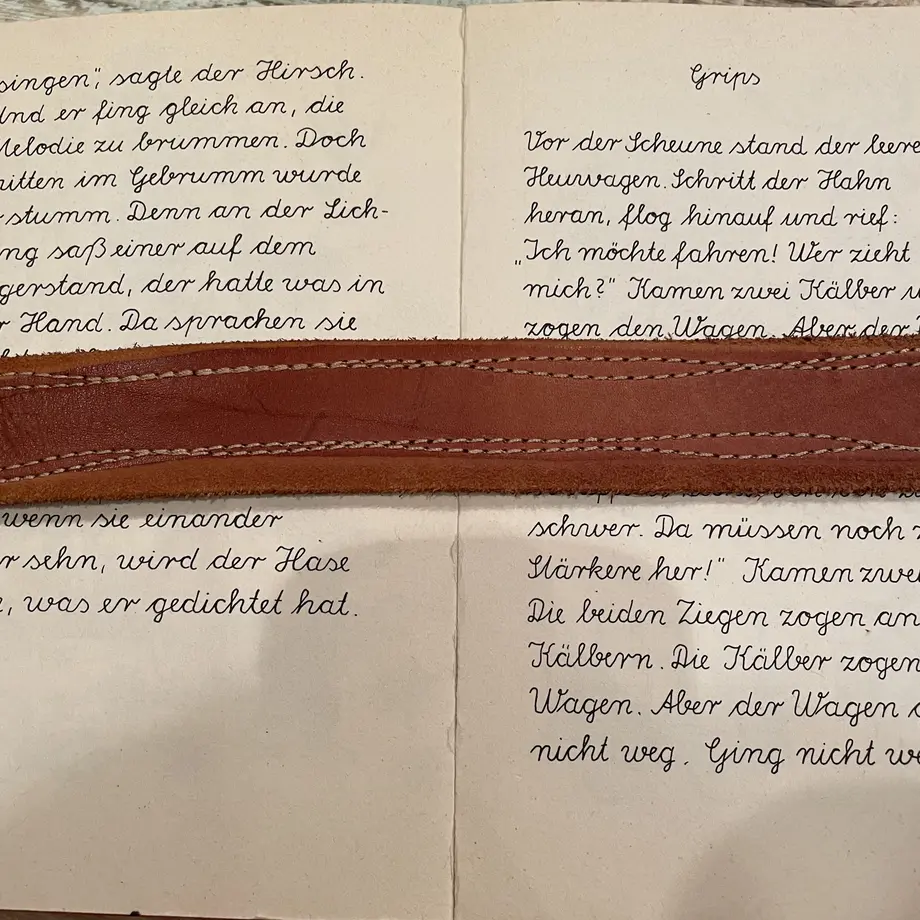 singen", sagte der Hirsch.
Und er fing gleich an, die
Melodie zu brummen. Doch
mitten im Gebrumm wurde
stumm. Denn an der Lich-
ng saß einer auf dem
gerstand, der hatte was in
r Hand. Da sprachen sie
wenn sie einander
r sehn, wird der Hase
, was er gedichtet hat.
Grips
Vor der Scheune stand der leere
Heuwagen. Schritt der Hahn
heran, flog hinauf und rief:
„Ich möchte fahren! Wer zieht
mich?" Kamen zwei Kälber u
zogen den Wagen. Aber der
schwer. Da müssen noch
Stärkere her!" Kamen zwei
Die beiden Ziegen zogen an
Kälbern. Die Kälber zogen
Wagen. Aber der Wagen
nicht weg. Ging nicht we